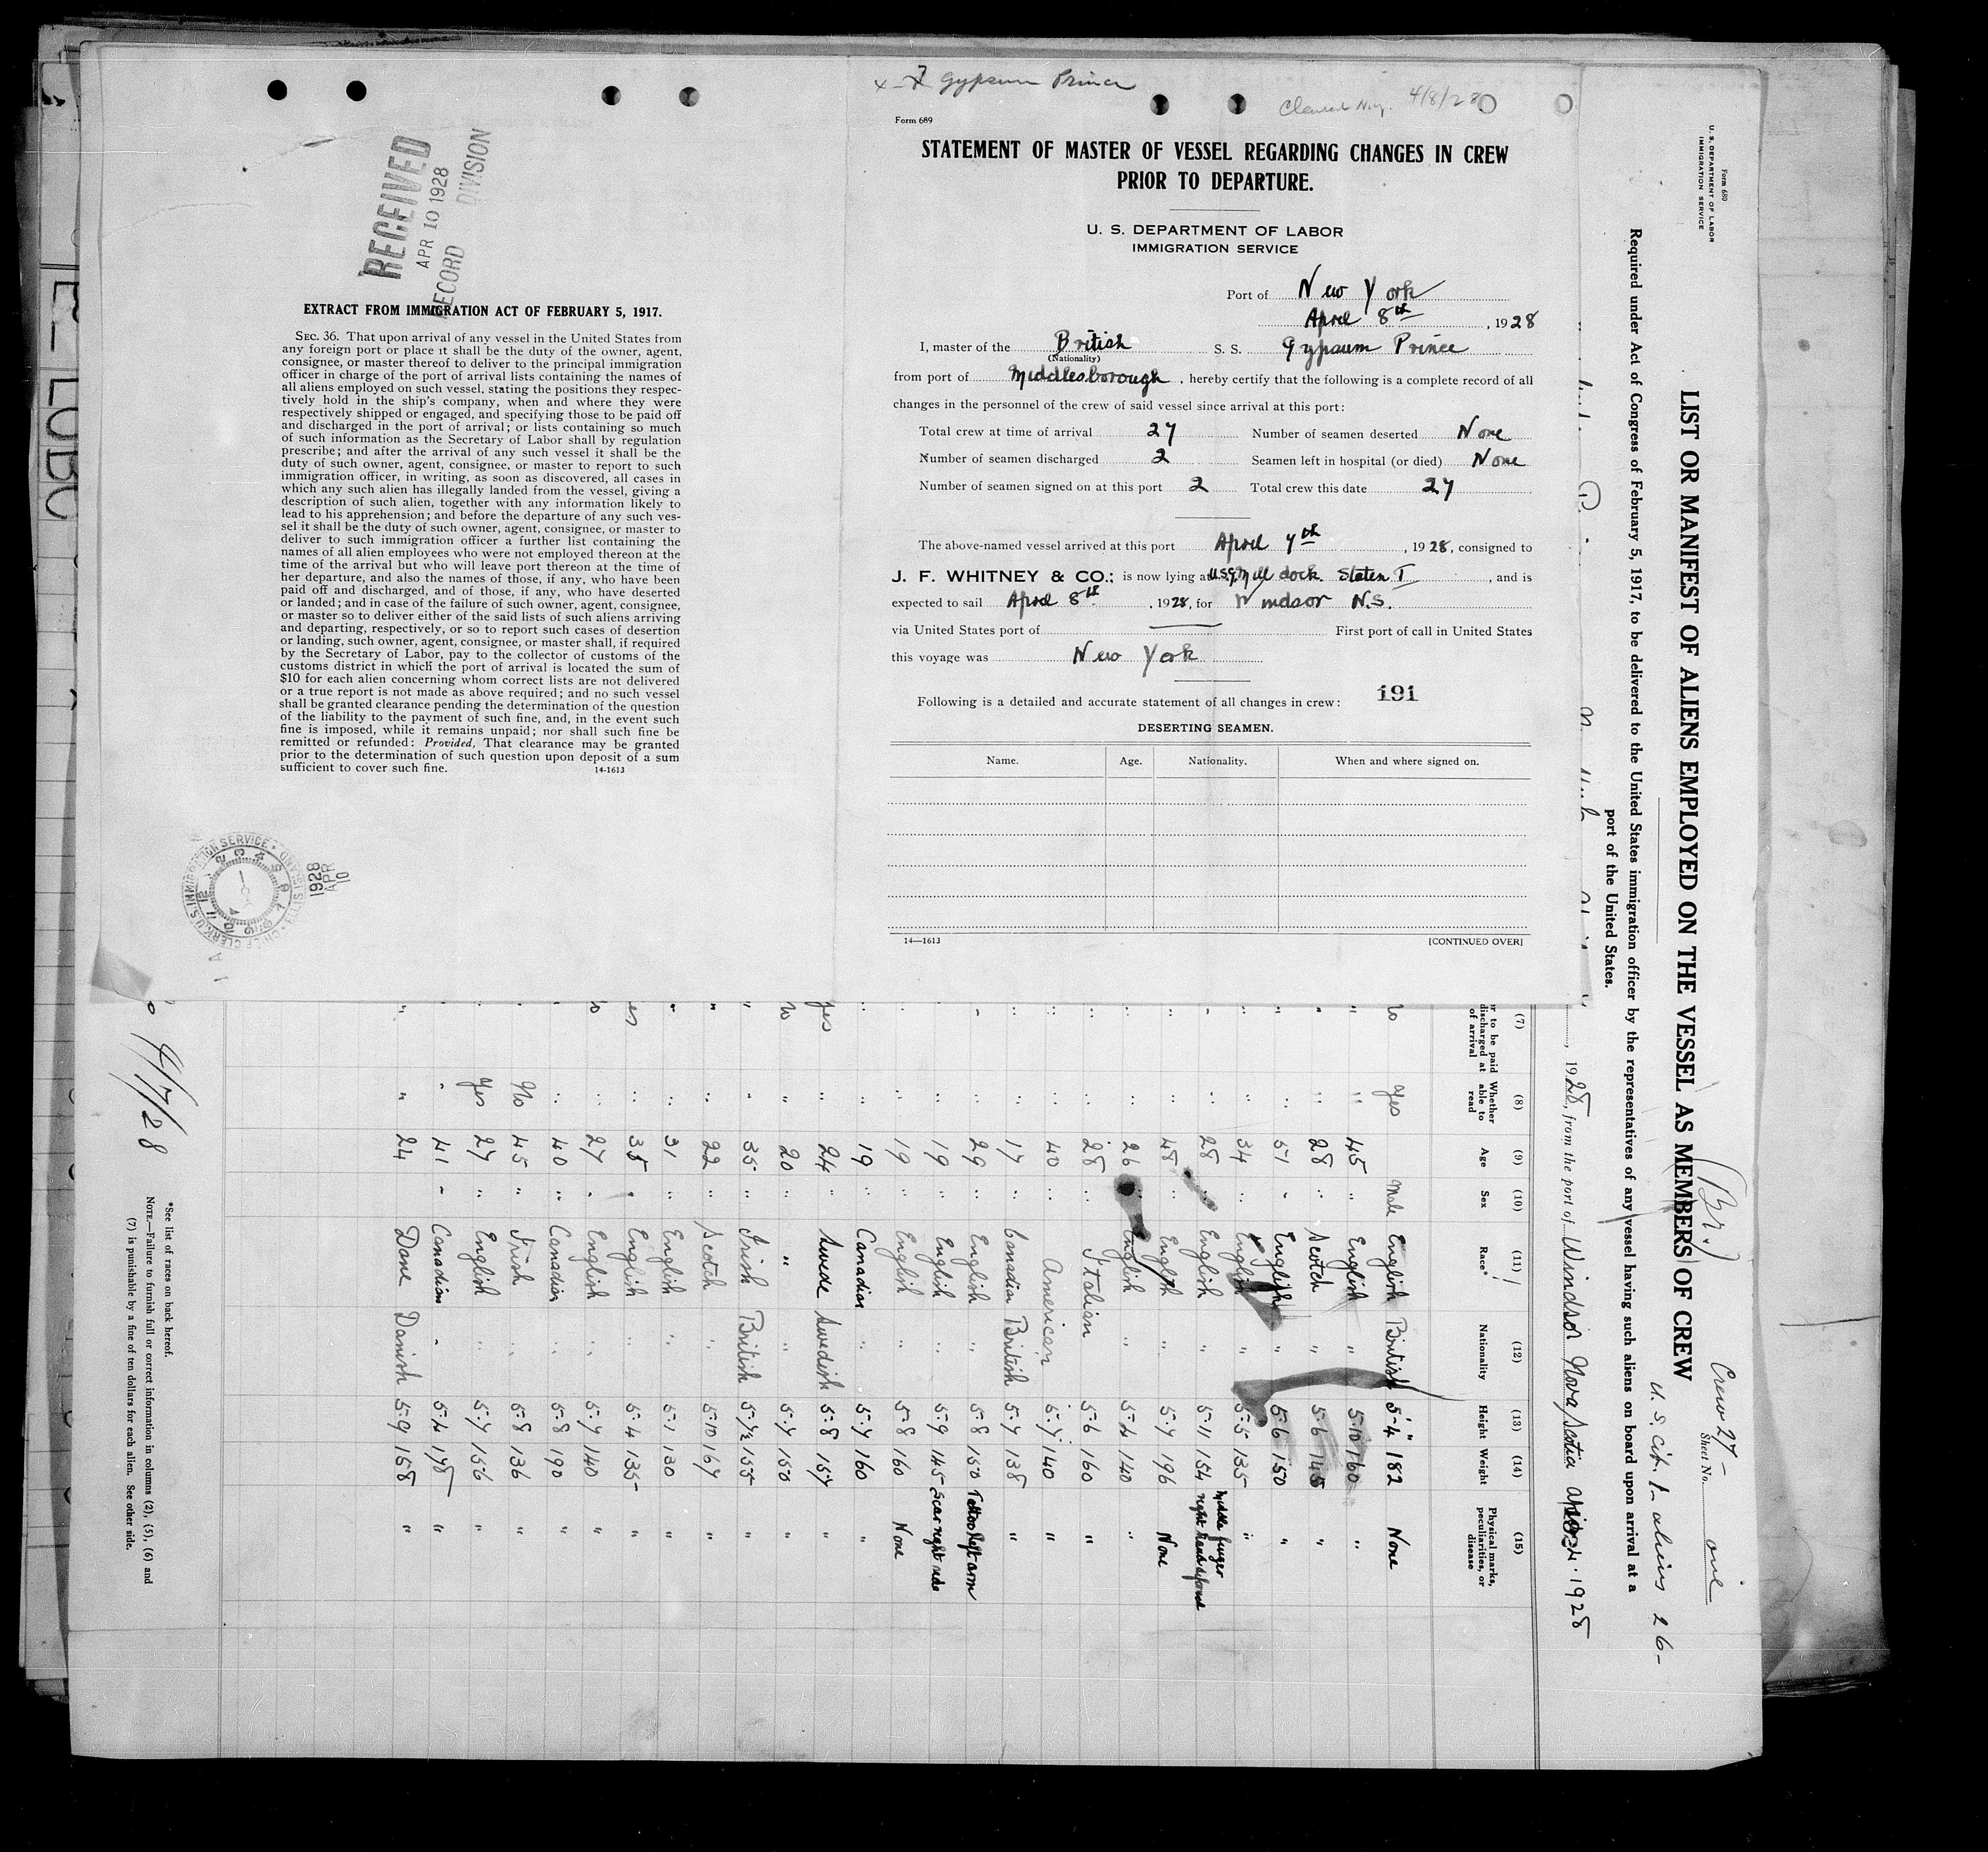 RECEIVED
APR 10 1928
RECORD DIVISION
EXTRACT FROM IMMIGRATION ACT OF FEBRUARY 5, 1917.
SEC. 36. That upon arrival of any vessel in the United States from
any foreign port or place it shall be the duty of the owner, agent,
consignee, or master thereof to deliver to the principal immigration
officer in charge of the port of arrival lists containing the names of
all aliens employed on such vessel, stating the positions they respec-
tively hold in the ship's company, when and where they were
respectively shipped or engaged, and specifying those to be paid off
and discharged in the port of arrival; or lists containing so much
of such information as the Secretary of Labor shall by regulation
prescribe; and after the arrival of any such vessel it shall be the
duty of such owner, agent, consignee, or master to report to such
immigration officer, in writing, as soon as discovered, all cases in
which any such alien has illegally landed from the vessel, giving a
description of such alien, together with any information likely to
lead to his apprehension; and before the departure of any such ves-
sel it shall be the duty of such owner, agent, consignee, or master to
deliver to such immigration officer a further list containing the
names of all alien employees who were not employed thereon at the
time of the arrival but who will leave port thereon at the time of
her departure, and also the names of those, if any, who have been
paid off and discharged, and of those, if any, who have deserted
or landed; and in case of the failure of such owner, agent, consignee,
or master so to deliver either of the said lists of such aliens arriving
and departing, respectively, or so to report such cases of desertion
or landing, such owner, agent, consignee, or master shall, if required
by the Secretary of Labor, pay to the collector of customs of the
customs district in which the port of arrival is located the sum of
$10 for each alien concerning whom correct lists are not delivered
or a true report is not made as above required; and no such vessel
shall be granted clearance pending the determination of the question
of the liability to the payment of such fine, and, in the event such
fine is imposed, while it remains unpaid; nor shall such fine be
remitted or refunded: Provided, That clearance may be granted
prior to the determination of such question upon deposit of a sum
sufficient to cover such fine. 14-1613
1928 APR 10
Gypsum Prince
Cleared N.Y. 4/8/28
Form 689
STATEMENT OF MASTER OF VESSEL REGARDING CHANGES IN CREW
PRIOR TO DEPARTURE.
U. S. DEPARTMENT OF LABOR
IMMIGRATION SERVICE
Port of New York
April 8th, 1928
I, master of the British S. S. Gypsum Prince
(Nationality)
from port of Middlesborough, hereby certify that the following is a complete record of all
changes in the personnel of the crew of said vessel since arrival at this port:
Total crew at time of arrival 27 Number of seamen deserted None
Number of seamen discharged 2 Seamen left in hospital (or died) None
Number of seamen signed on at this port 2 Total crew this date 27
The above-named vessel arrived at this port April 7th, 1928, consigned to
J. F. WHITNEY & CO.; is now lying at U.S.G. Mill dock. Staten I, and is
expected to sail April 8th, 1928, for Windsor N.S.
via United States port of First port of call in United States
this voyage was New York
Following is a detailed and accurate statement of all changes in crew: 191
DESERTING SEAMEN.
Name. Age. Nationality. When and where signed on.
14—1613 [CONTINUED OVER]
Form 680
U. S. DEPARTMENT OF LABOR
IMMIGRATION SERVICE
(Br.) Crew 27-
U. S. Cit. 1- aliens 26-
Sheet No. one
LIST OR MANIFEST OF ALIENS EMPLOYED ON THE VESSEL AS MEMBERS OF CREW
Required under Act of Congress of February 5, 1917, to be delivered to the United States immigration officer by the representatives of any vessel having such aliens on board upon arrival at a
port of the United States.
, 1928, from the port of Windsor Nova Scotia 1928
(7) (8) (9) (10) (11) (12) (13) (14) (15)
or to be paid discharged at of arrival Whether able to read Age Sex Race* Nationality Height Weight Physical marks, peculiarities, or disease
yes Male English British 5-4 182 None
" 45 " English " 5-10 160 "
" " 28 " Scotch " 5-6 145 "
" " 51 " English " 5-6 150 "
" " 34 " English " 5-5 135 "
" " 28 " English " 5-11 154 middle finger right hand
" " 48 " English " 5-7 196 None
" " 26 English " 5-4 140 "
" " 28 " Italian 5-6 160 "
" " 40 " American 5-7 140 "
" " 17 " Canadian British 5-7 138 "
" " 29 " English " 5-8 150 Tattoo left arm
" 19 " English " 5-9 145 Scar right side
" " 19 " English " 5-8 160 None
" " 19 " Canadian " 5-7 160 "
yes " 24 " Swede Swedish 5-8 157 "
no " 20 " " " 5-7 150 "
" " 35 " Irish British 5-7½ 155 "
" " 22 " Scotch " 5-10 167 "
" " 31 " English " 5-1 130 "
" 35 " English " 5-4 135 "
" 27 " English " 5-7 140 "
" " 40 " Canadian " 5-8 190 "
" No 45 " Irish " 5-8 136 "
" yes 27 " English " 5-7 156 "
" 41 - Canadian - 5-4 178 "
" " 24 Dane Danish 5-9 158 "
4/7/28
*See list of races on back hereof.
NOTE.—Failure to furnish full or correct information in columns (2), (5), (6) and
(7) is punishable by a fine of ten dollars for each alien. See other side.